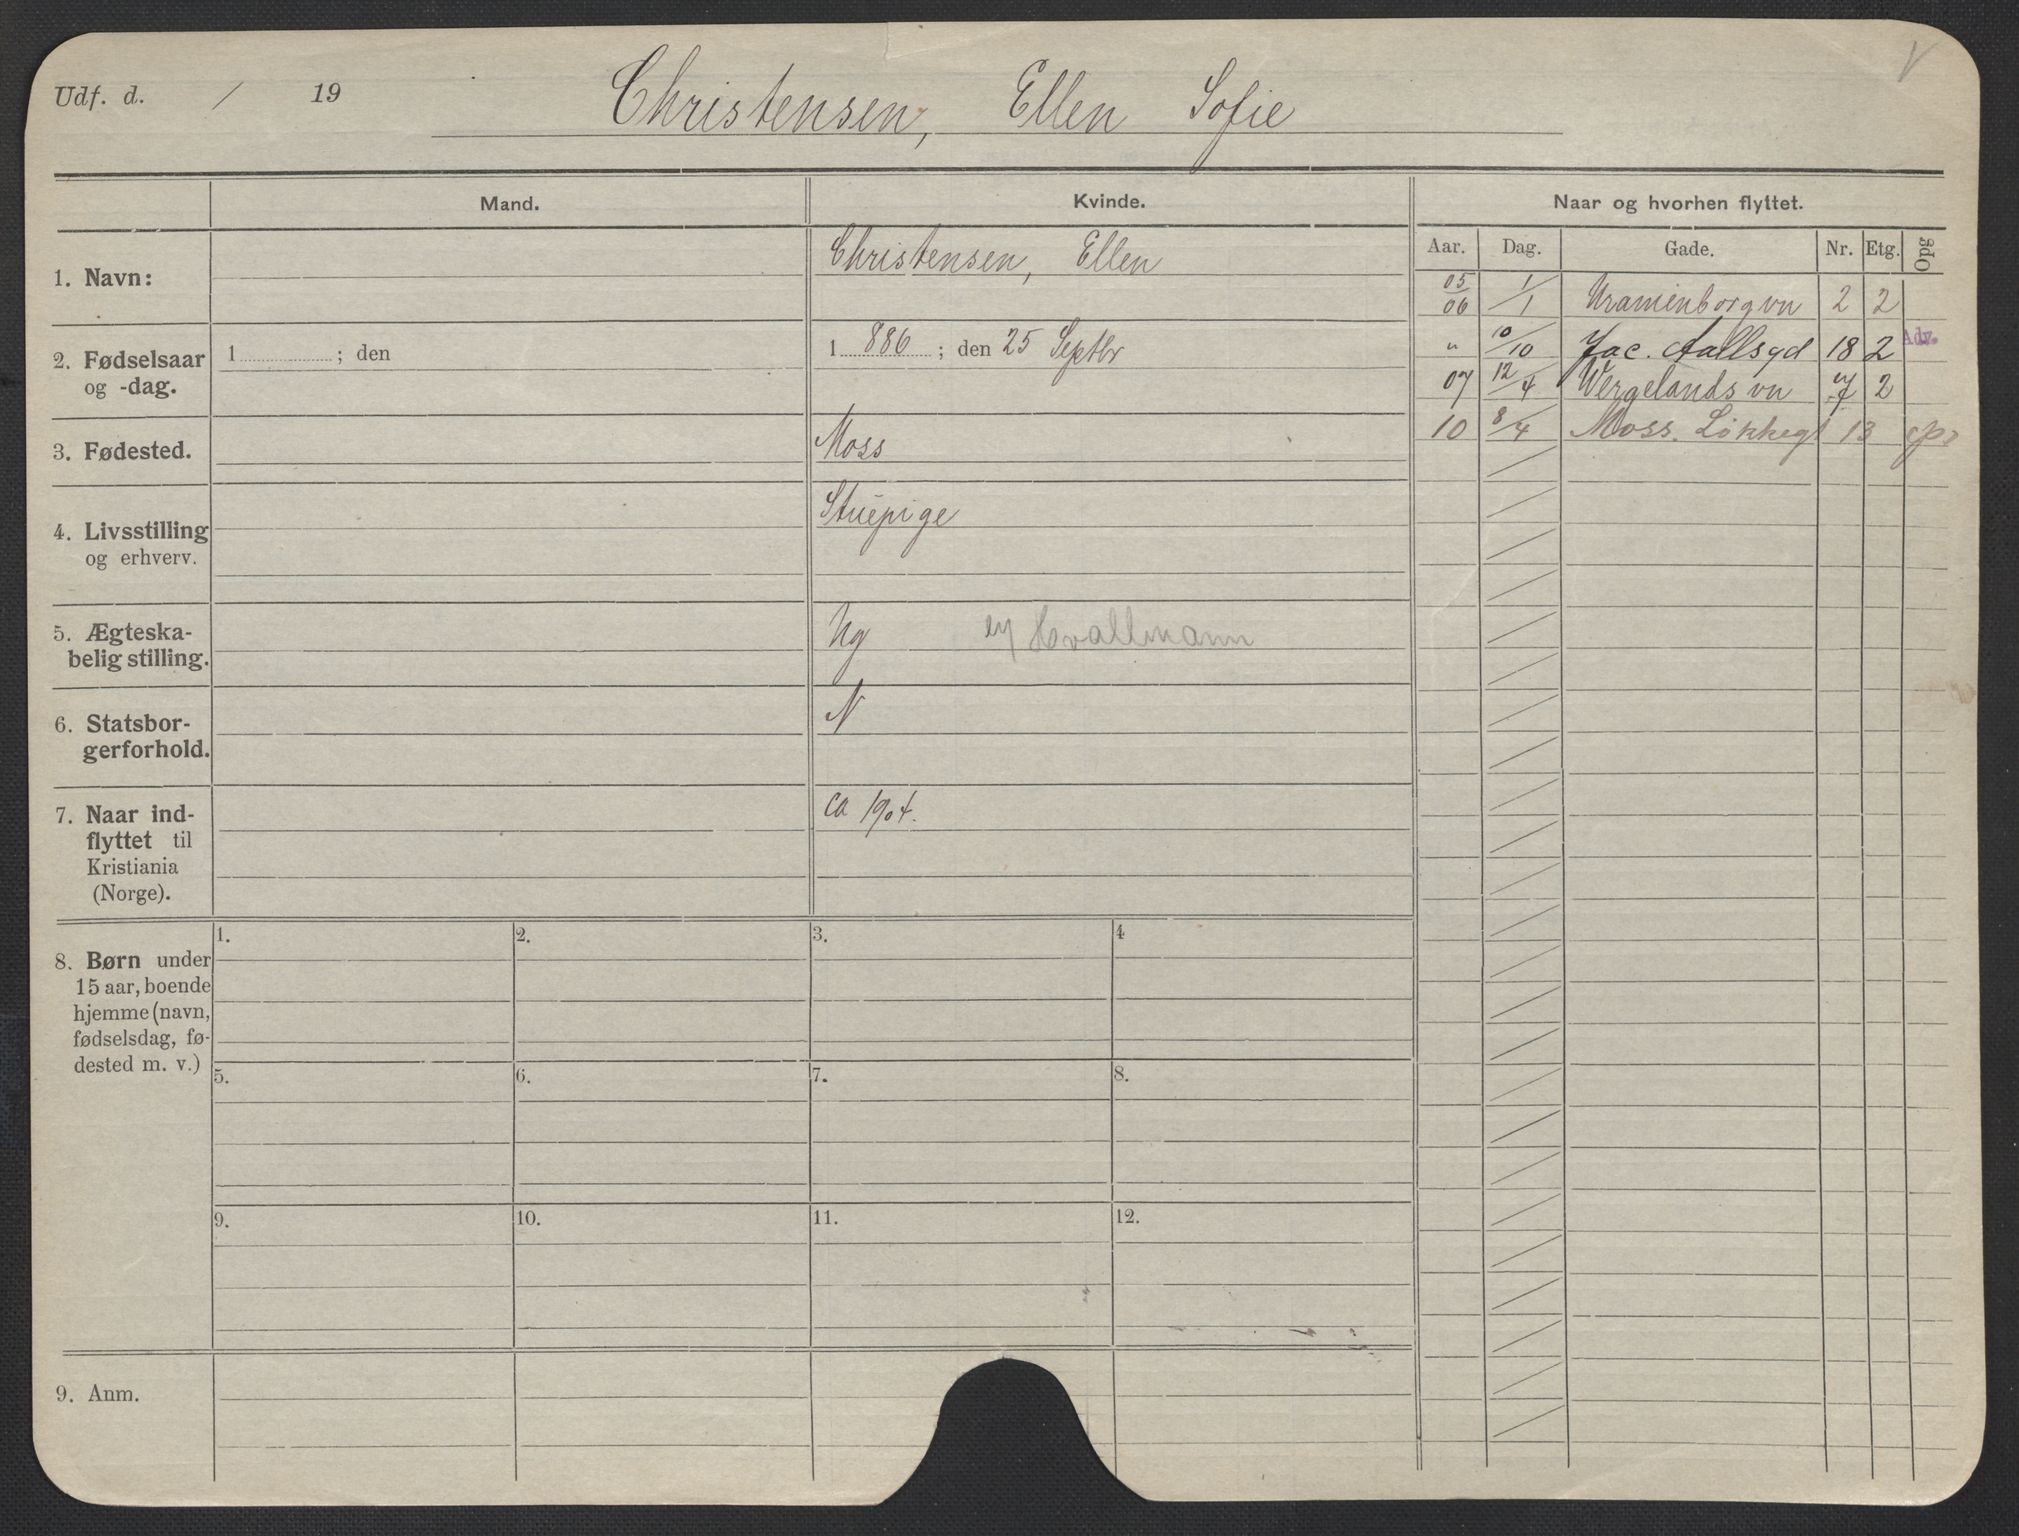 Udf. d. / 19
Christensen, Ellen Sofie
Mand.
Kvinde.
Naar og hvorhen flyttet.
Aar. Dag. Gade. Nr. Etg. Opg
1. Navn:
Christensen, Ellen
2. Fødselsaar
og -dag.
1 ; den
1 886 ; den 25 Septbr
3. Fødested.
Moss
4. Livsstilling
og erhverv.
Stuepige
5. Ægteska-
belig stilling.
Ug Hvallmann
6. Statsbor-
gerforhold.
N
7. Naar ind-
flyttet til
Kristiania
(Norge).
ca 1904.
05/06 1/1 Uranienborgvn 2 2
" 10/10 Jac. Aallsgd 18 2 Adv.
07 12/4 Wergelandsvn 7 2
10 8/4 Moss. Løkkegt 13
8. Børn under
15 aar, boende
hjemme (navn,
fødselsdag, fø-
dested m. v.)
1. 2. 3. 4
5. 6. 7. 8.
9. 10. 11. 12.
9. Anm.